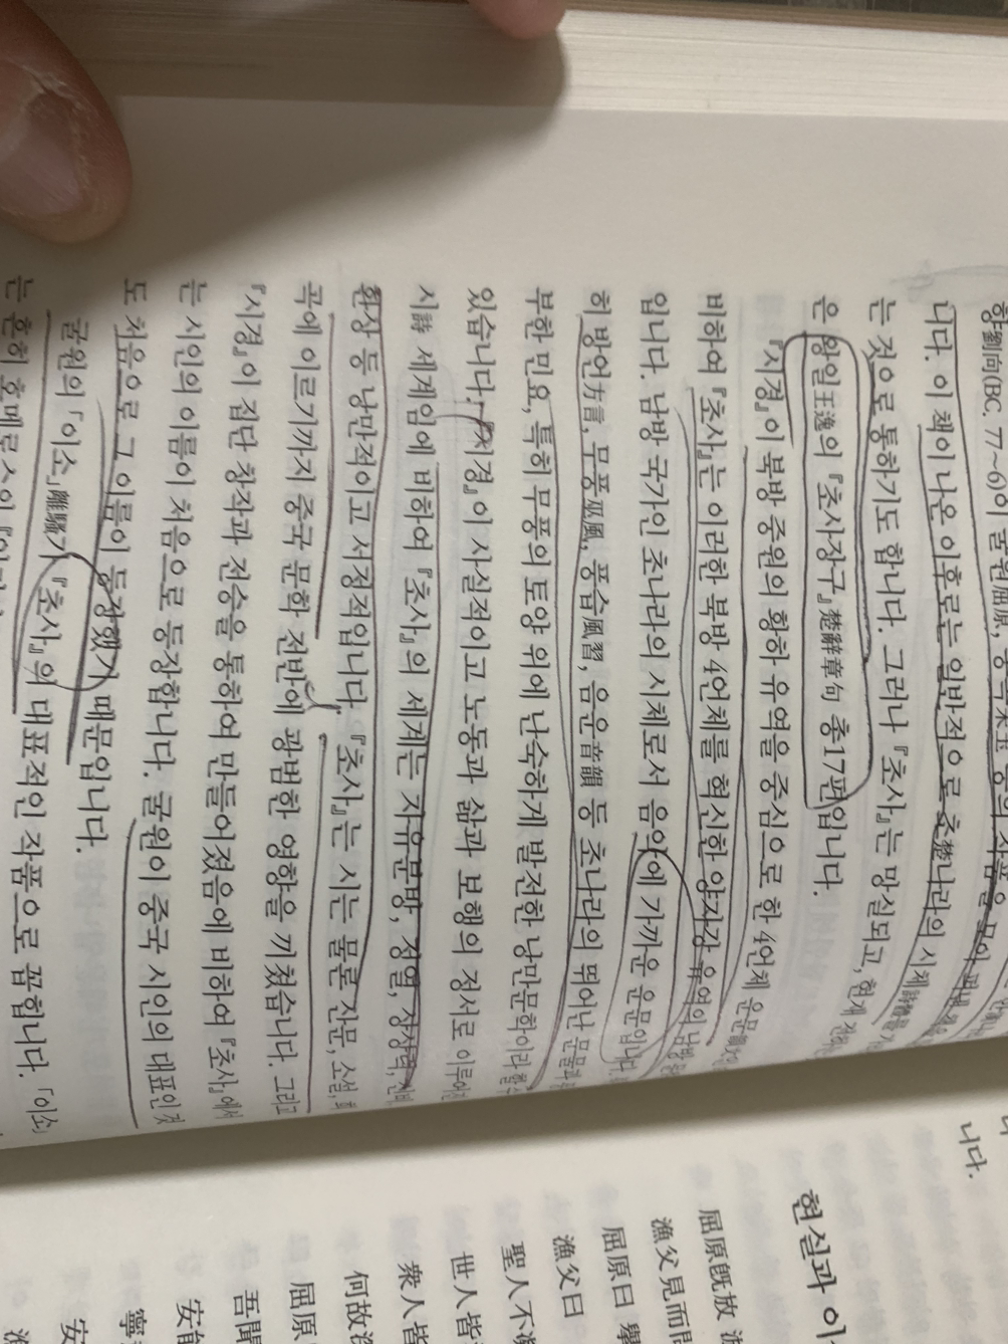 향劉向(BC. 77~6)이 굴원屈原, 송옥宋玉 등의 작품을 모아
니다. 이 책이 나온 이후로는 일반적으로 초楚나라의 시체詩體를
는 것으로 통하기도 합니다. 그러나 『초사』는 망실되고, 현재
은 왕일王逸의 『초사장구』楚辭章句 총17편입니다.
『시경』이 북방 중원의 황하 유역을 중심으로 한 4언체 운문
비하여 『초사』는 이러한 북방 4언체를 혁신한 양자강 유역의 남방
입니다. 남방 국가인 초나라의 시체로서 음악에 가까운 운문입니다.
히 방언方言, 무풍巫風, 풍습風習, 음운音韻 등 초나라의 뛰어난 문물과
부한 민요, 특히 무풍의 토양 위에 난숙하게 발전한 낭만문학이라 할 수
있습니다. 『시경』이 사실적이고 노동과 삶과 보행의 정서로 이루어진
시詩 세계임에 비하여 『초사』의 세계는 자유분방, 정열, 상상력, 신비
환상 등 낭만적이고 서정적입니다. 『초사』는 시는 물론 산문, 소설, 희
곡에 이르기까지 중국 문학 전반에 광범한 영향을 끼쳤습니다. 그리고
『시경』이 집단 창작과 전승을 통하여 만들어졌음에 비하여 『초사』에서
는 시인의 이름이 처음으로 등장합니다. 굴원이 중국 시인의 대표인 것
도 처음으로 그 이름이 등장했기 때문입니다.
굴원의 「이소」離騷가 『초사』의 대표적인 작품으로 꼽힙니다. 「이소」
는 흔히 호메로스의
니다.
현실과 이
屈原旣放
漁父見而問
屈原曰 擧
漁父曰
聖人不凝
世人皆
衆人皆
何故
屈原
吾聞
安能
寧
安